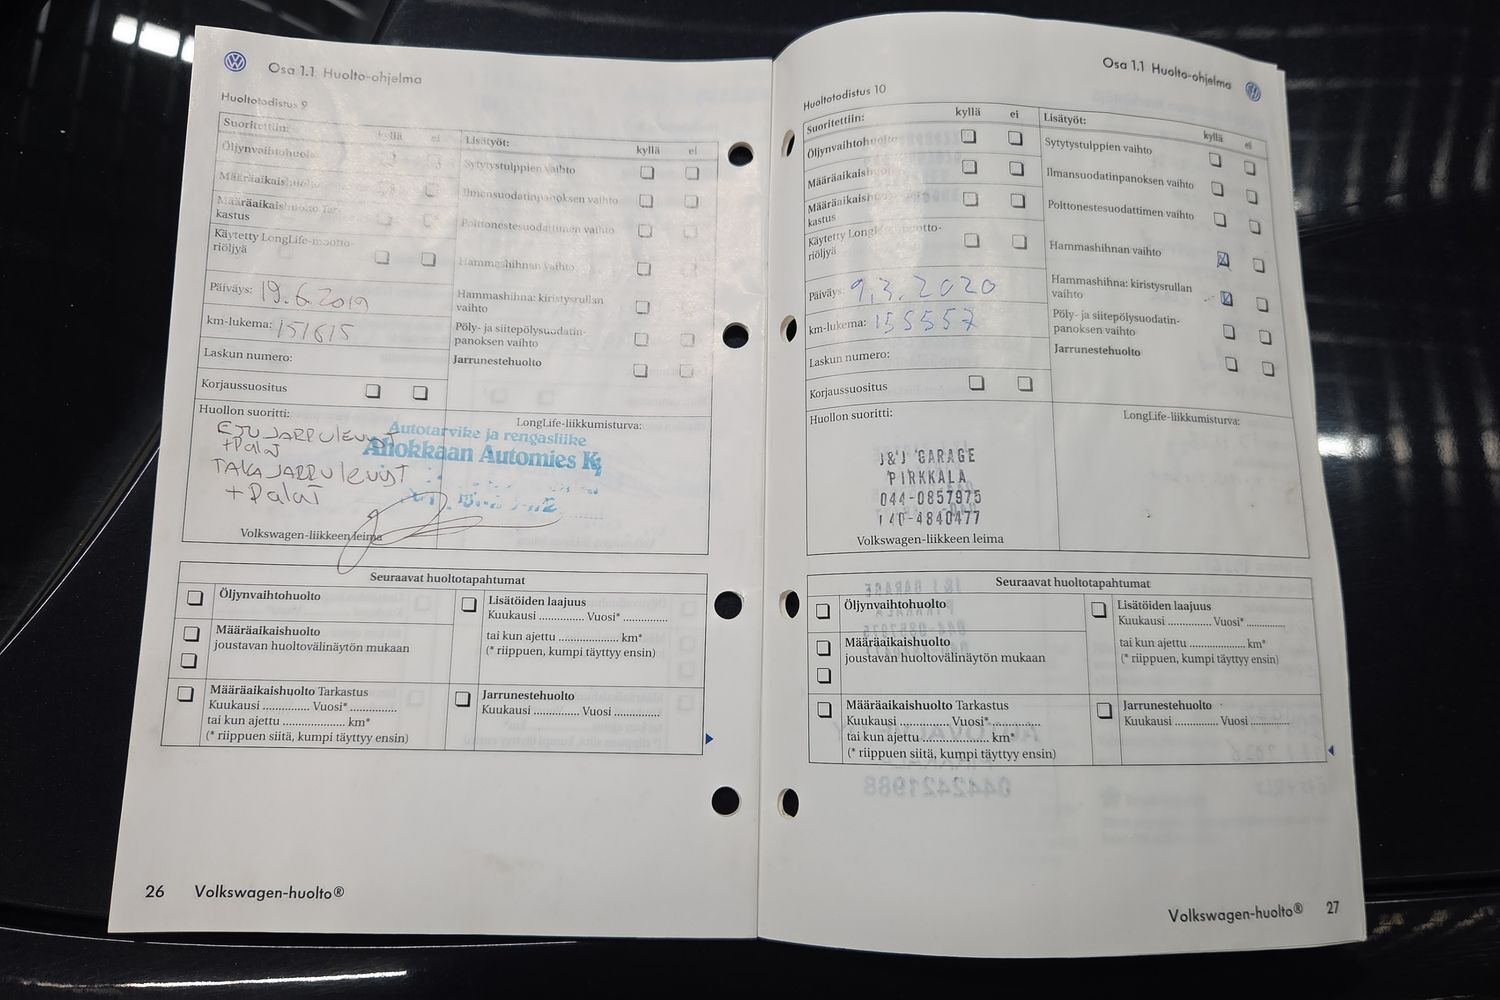 Osa 1.1 Huolto-ohjelma
Huoltotodistus 9
Suoritettiin: kyllä ei
Öljynvaihtohuolto
Määräaikaishuolto
Määräaikaishuolto Tar-
kastus
Käytetty LongLife-mootto-
riöljyä
Päiväys: 19.6.2019
km-lukema: 151615
Laskun numero:
Korjaussuositus
Lisätyöt:
kyllä ei
Sytytystulppien vaihto
Ilmansuodatinpanoksen vaihto
Polttonestesuodattimen vaihto
Hammashihnan vaihto
Hammashihna: kiristysrullan
vaihto
Pöly- ja siitepölysuodatin-
panoksen vaihto
Jarrunestehuolto
Huollon suoritti:
ETUJARRULEVYT
+PALAT
TAKAJARRULEVYT
+PALAT
LongLife-liikkumisturva:
Autotarvike ja rengasliike
Ahokkaan Automies Ky
Volkswagen-liikkeen leima
Seuraavat huoltotapahtumat
Öljynvaihtohuolto
Määräaikaishuolto
joustavan huoltovälinäytön mukaan
Määräaikaishuolto Tarkastus
Kuukausi .............. Vuosi* ..............
tai kun ajettu .................. km*
(* riippuen siitä, kumpi täyttyy ensin)
Lisätöiden laajuus
Kuukausi .............. Vuosi* ..............
tai kun ajettu .................. km*
(* riippuen, kumpi täyttyy ensin)
Jarrunestehuolto
Kuukausi .............. Vuosi ..............
26 Volkswagen-huolto®
Osa 1.1 Huolto-ohjelma
Huoltotodistus 10
Suoritettiin: kyllä ei
Öljynvaihtohuolto
Määräaikaishuolto
Määräaikaishuolto
kastus
Käytetty LongLife-mootto-
riöljyä
Päiväys: 9.3.2020
km-lukema: 155557
Laskun numero:
Korjaussuositus
Lisätyöt:
kyllä ei
Sytytystulppien vaihto
Ilmansuodatinpanoksen vaihto
Polttonestesuodattimen vaihto
Hammashihnan vaihto
Hammashihna: kiristysrullan
vaihto
Pöly- ja siitepölysuodatin-
panoksen vaihto
Jarrunestehuolto
Huollon suoritti:
J&J GARAGE
PIRKKALA
044-0857975
040-4840477
Volkswagen-liikkeen leima
LongLife-liikkumisturva:
Seuraavat huoltotapahtumat
Öljynvaihtohuolto
Määräaikaishuolto
joustavan huoltovälinäytön mukaan
Määräaikaishuolto Tarkastus
Kuukausi .............. Vuosi* ..............
tai kun ajettu .................. km*
(* riippuen siitä, kumpi täyttyy ensin)
Lisätöiden laajuus
Kuukausi .............. Vuosi* ..............
tai kun ajettu .................. km*
(* riippuen, kumpi täyttyy ensin)
Jarrunestehuolto
Kuukausi .............. Vuosi ..............
Volkswagen-huolto® 27